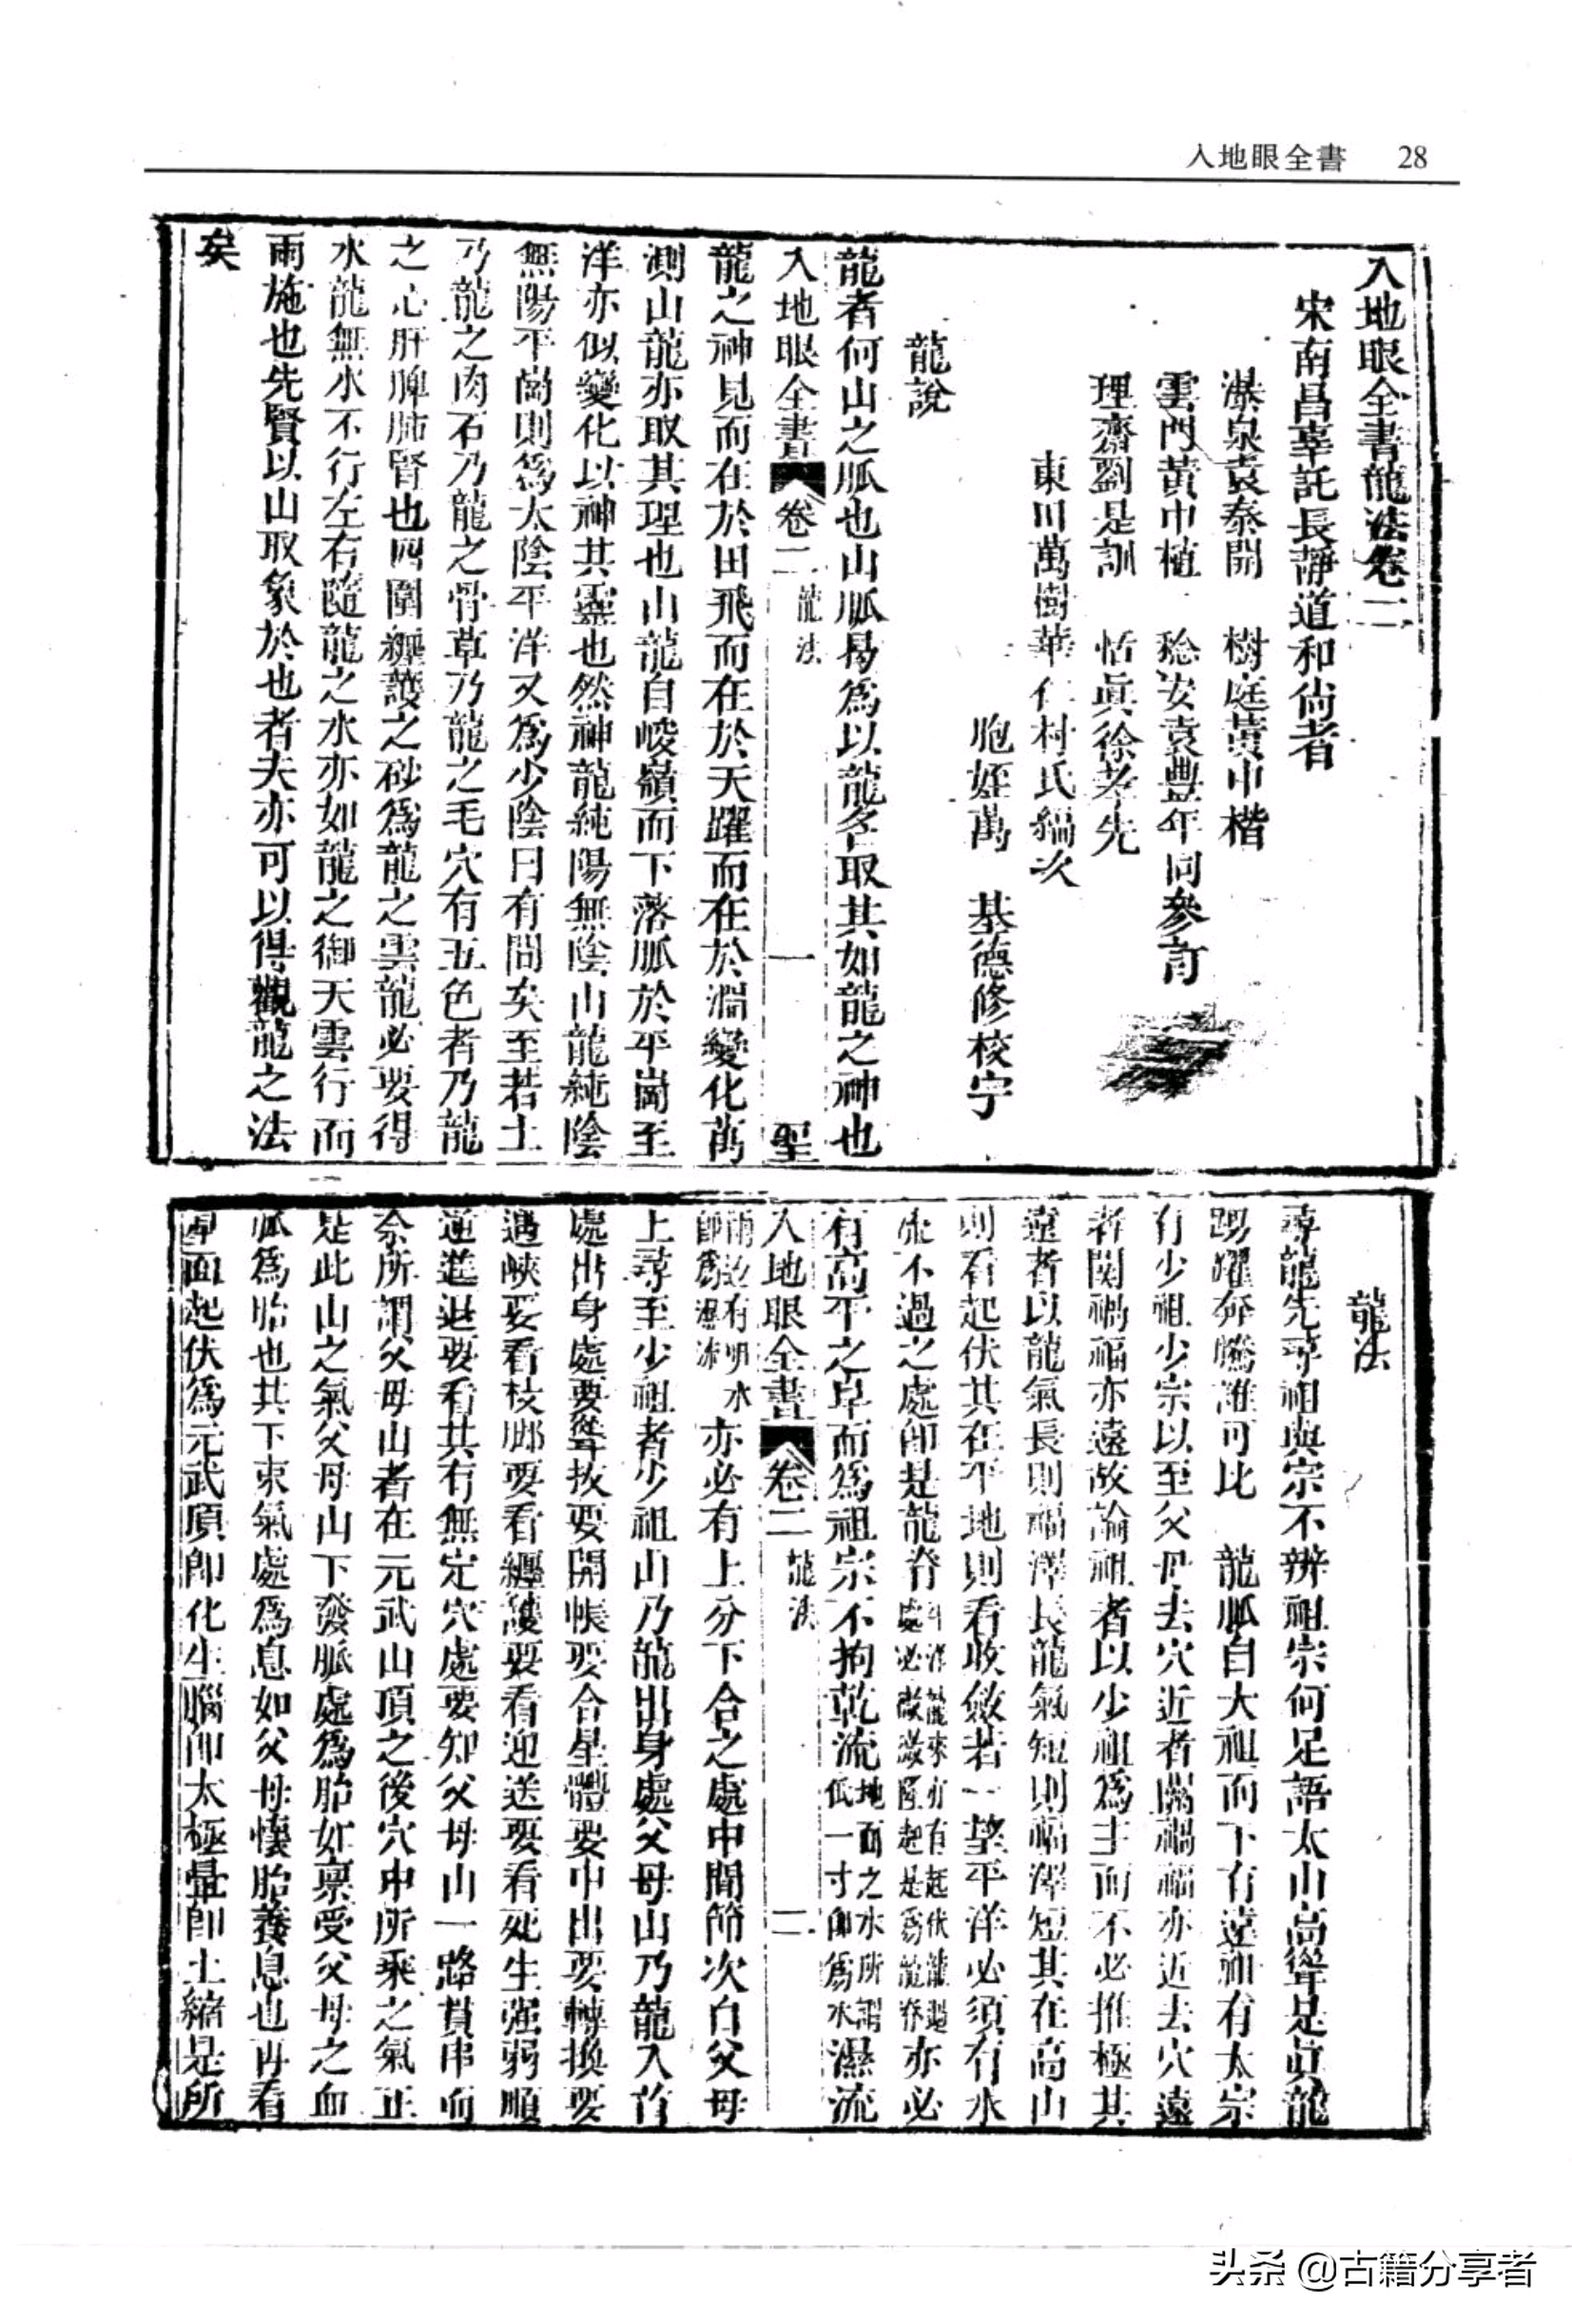 入地眼全書 28
入地眼全書龍法卷二
宋南昌辜託長靜道和尚者
瀑泉袁泰開 樹庭黃中楷
雲門黃中植 稔安袁豐年同參訂
理齋劉是訓 恬眞徐孝先
東川萬樹華仁村氏編次
胞姪萬 基德修校字
龍說
龍者何山之脈也山脈曷爲以龍名取其如龍之神也
入地眼全書 卷二 龍法 一
龍之神見而在於田飛而在於天躍而在於淵變化萬
測山龍亦取其理也山龍自峻嶺而下落脈於平崗至
洋亦似變化以神其靈也然神龍純陽無陰山龍純陰
無陽平崗則爲太陰平洋又爲少陰曰有間矣至若土
乃龍之肉石乃龍之骨草乃龍之毛穴有五色者乃龍
之心肝脾肺腎也四圍纏護之砂爲龍之雲龍必要得
水龍無水不行左右隨龍之水亦如龍之御天雲行而
雨施也先賢以山取象於也者夫亦可以得觀龍之法
矣
龍法
尋龍先尋祖與宗不辨祖宗何足語太山高聳足眞龍
踴躍奔騰誰可比 龍脈自大祖而下有遠祖有太宗
有少祖少宗以至父母去穴近者關禍福亦近去穴遠
者關禍福亦遠故論祖者以少祖爲主而不必推極其
遠者以龍氣長則福澤長龍氣短則福澤短其在高山
則看起伏其在平地則看收斂若一望平洋必須有水
流不過之處卽是龍脊平洋龍來亦有起伏龍過處必微微隆起是爲龍脊亦必
有高平之阜而爲祖宗不拘乾流地面之水所謂低一寸卽爲水濕流
入地眼全書 卷二 龍法 二
亦必有上分下合之處中間節次自父母
上尋至少祖者少祖山乃龍出身處父母山乃龍入首
處出身處要聳拔要開帳要合星體要中出要轉換要
過峽要看枝脚要看纏護要看迎送要看死生强弱順
逆進退要看其有無定穴處要知父母山一路貫串而
余所謂父母山者在元武山頂之後穴中所乘之氣正
是此山之氣父母山下發脈處爲胎如稟受父母之血
脈爲胎也其下束氣處爲息如父母懷胎養息也再看
星面起伏爲元武頂卽化生腦卽太極暈卽土縮是所
头条 @古籍分享者